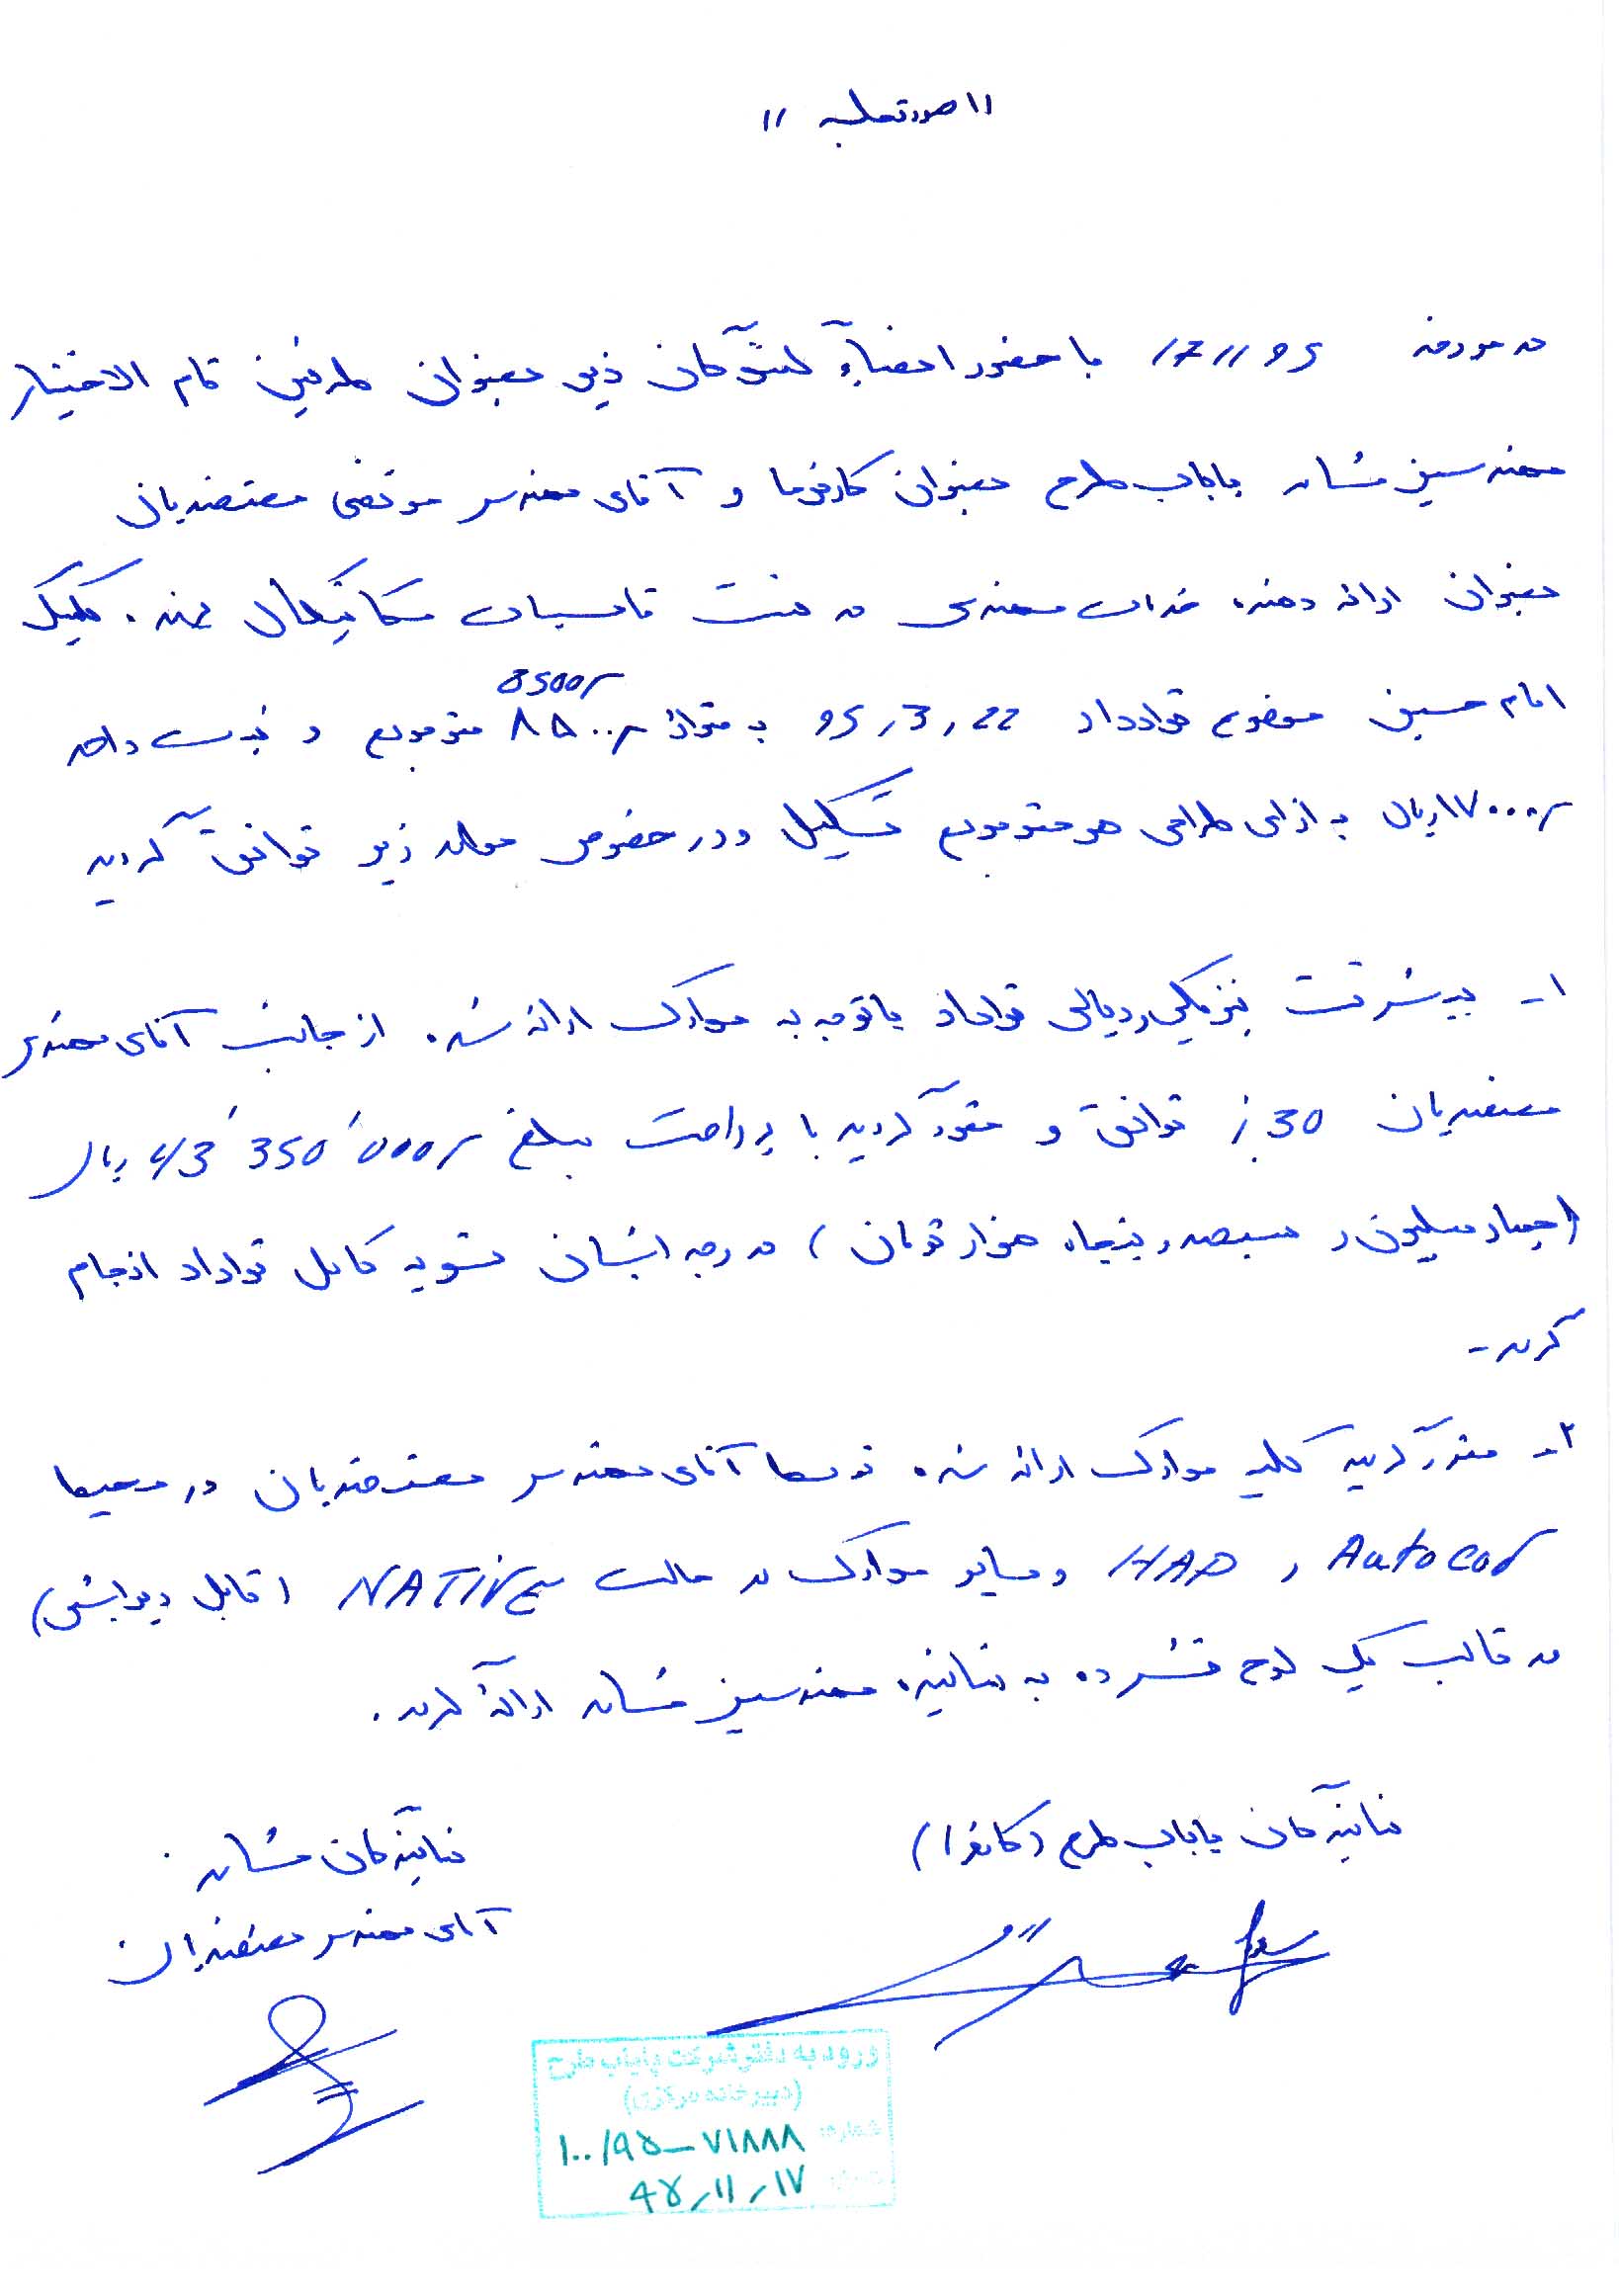 " صورتجلسه "
در مورخه 17 11 95 با حضور امضاء کنندگان ذیل بعنوان طرفین تام الاختیار
مهندسین مشاور پایاب طرح بعنوان کارفرما و آقای مهندس مرتضی معتضدیان
بعنوان ارائه دهنده خدمات مهندسی در قسمت تاسیسات مکانیکال
8500
امام حسین موضوع قرارداد 95,3,22 به متراژ ۸۵۰۰ مترمربع و قیمت واحد
۱۷۰۰۰ ریال به ازای طراحی هر مترمربع تشکیل و در خصوص موارد زیر توافق گردید
۱- پیشرفت فیزیکی و ریالی قرارداد با توجه به مدارک ارائه شده از جانب آقای مهندس
معتضدیان 30٪ توافق و مقرر گردید با پرداخت مبلغ 43'350'000 ریال
(چهار میلیون و سیصد و پنجاه هزار تومان) در وجه ایشان تسویه کامل قرارداد انجام
گردد -
۲- مقرر گردید کلیه مدارک ارائه شده توسط آقای مهندس معتضدیان در محیط
Autocad و HAP و سایر مدارک در حالت NATIVE (قابل ویرایش)
در قالب یک لوح فشرده به نماینده مهندسین مشاور ارائه گردد.
نمایندگان پایاب طرح (کارفرما)
نمایندگان مشاور
آقای مهندس معتضدیان
ورود به دفتر شرکت پایاب طرح
(دبیرخانه مرکزی)
شماره: ۱۰۰/۹۵-۷۱۸۸۸
تاریخ: ۹۵,۱۱,۱۷